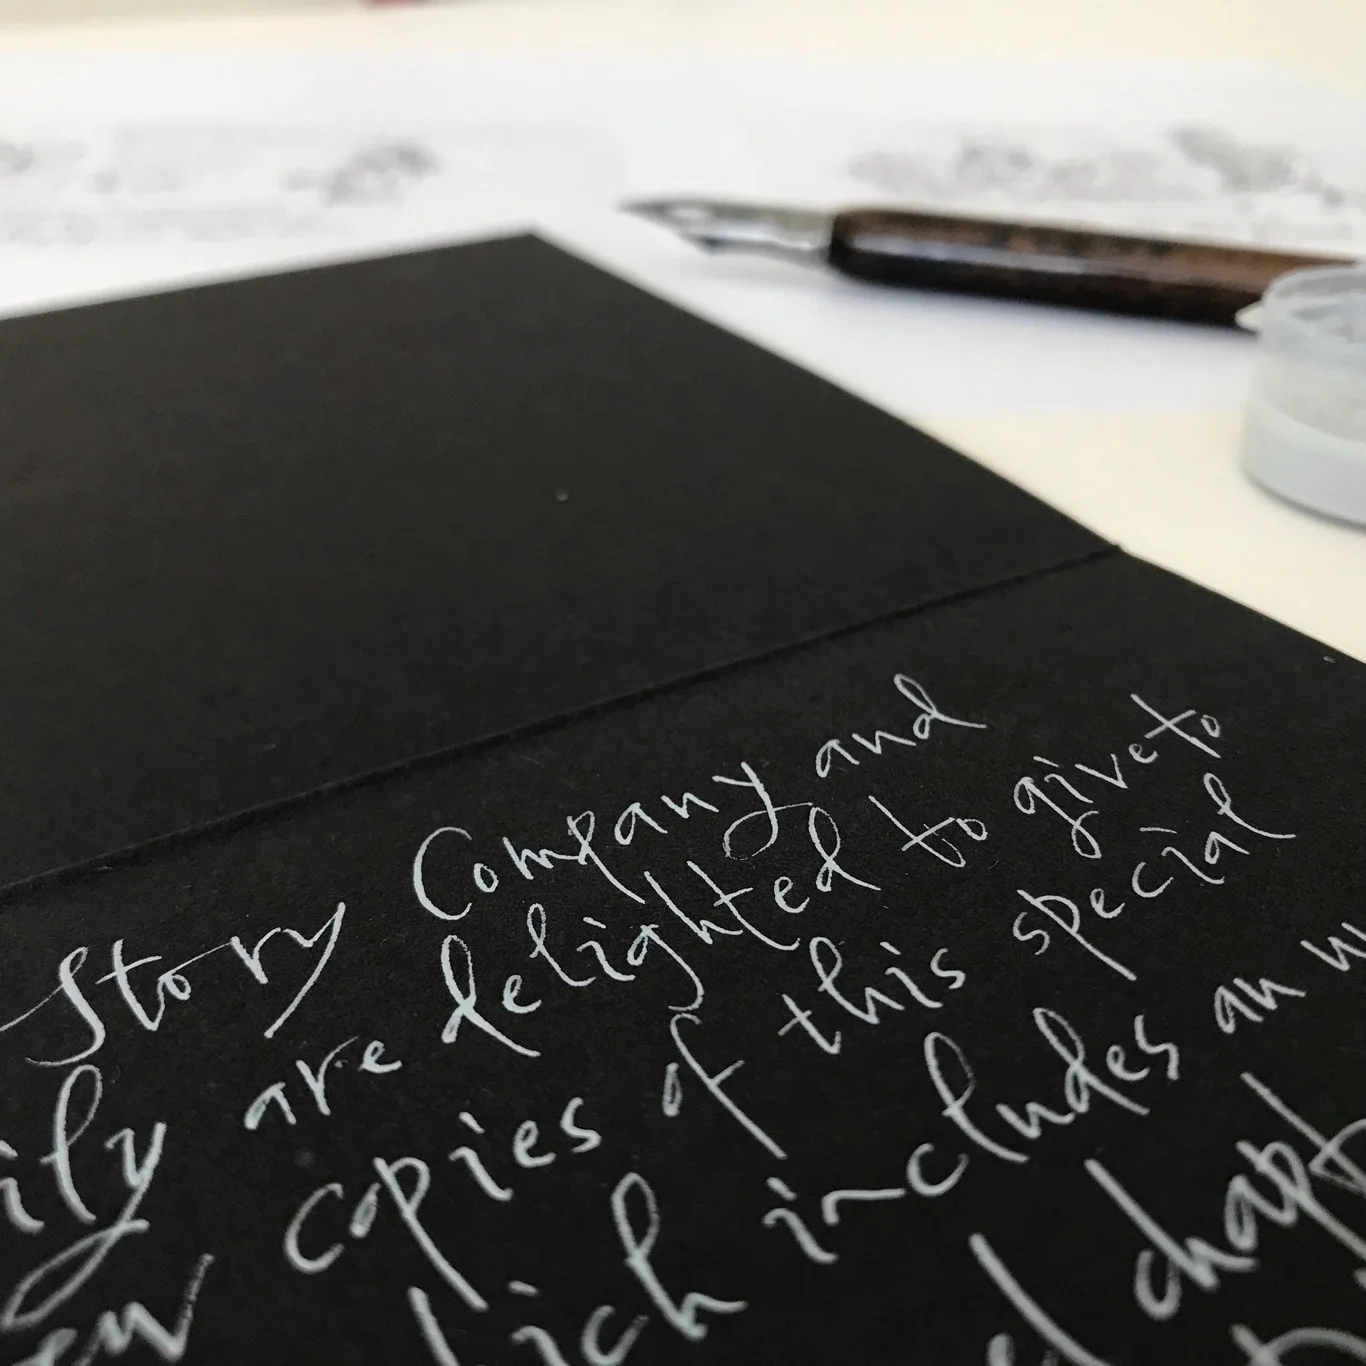 Story Company and
ily are delighted to give to
copies of this special
ich includes an
chapt